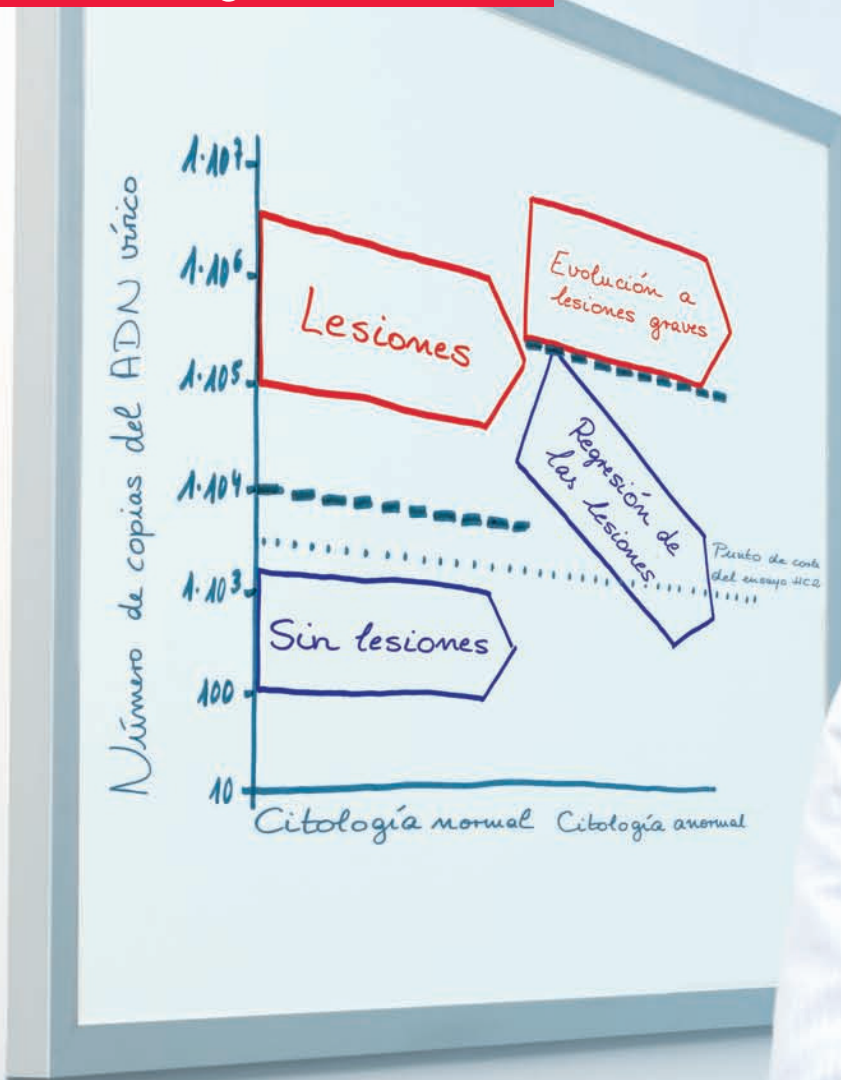 Número de copias del ADN vírico
1·10⁷
1·10⁶
1·10⁵
1·10⁴
1·10³
100
10
Lesiones
Evolución a
lesiones graves
Regresión de
las lesiones
Sin lesiones
Punto de corte
del ensayo HC2
Citología normal
Citología anormal